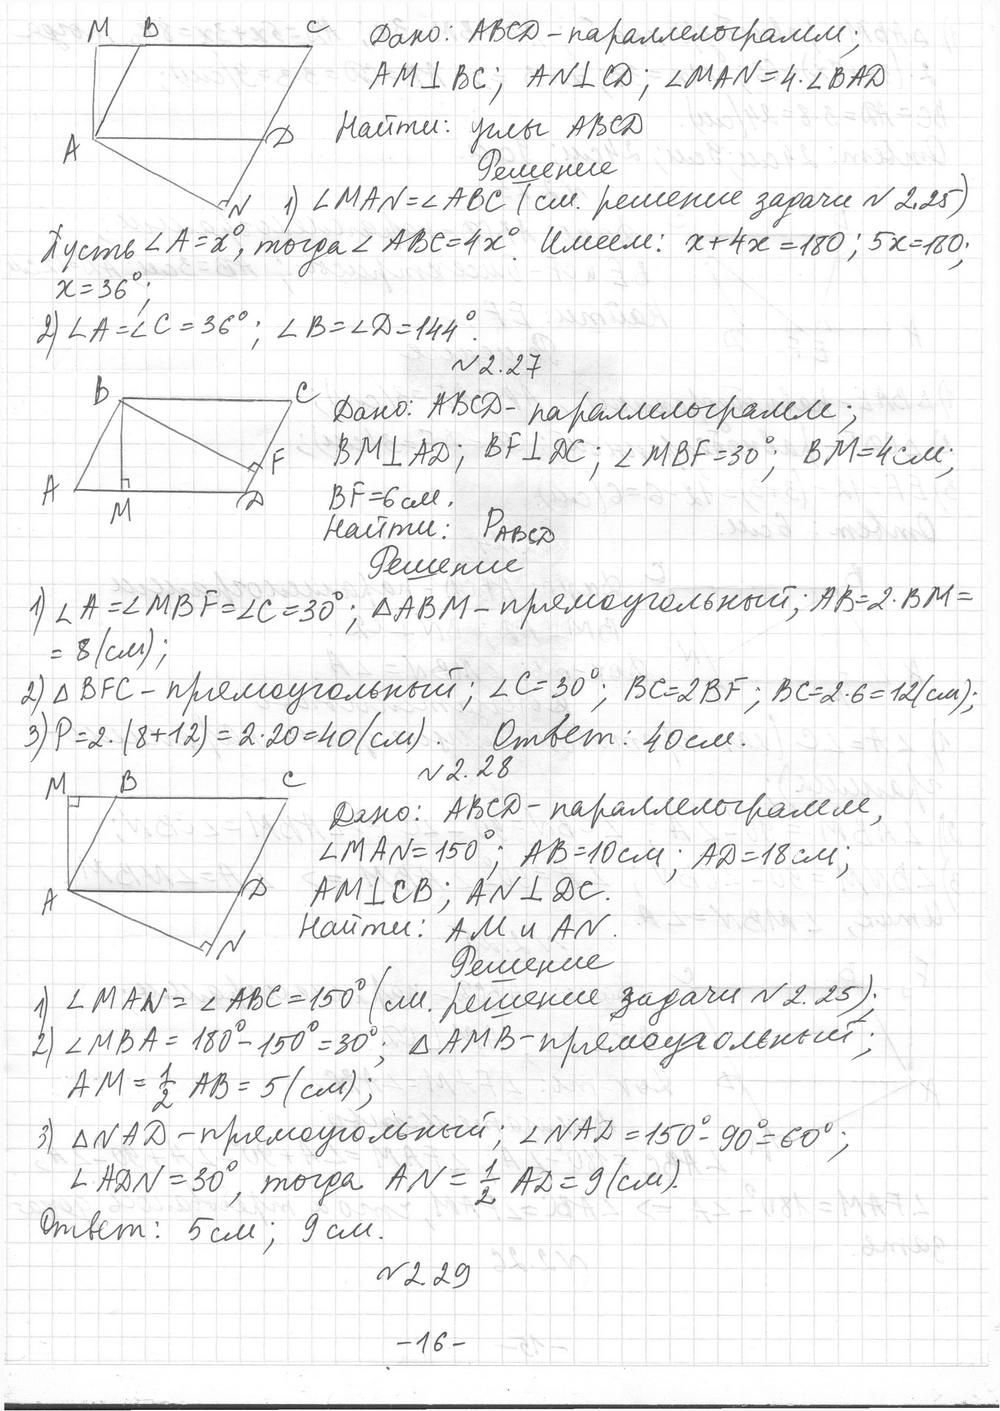 M B C
A D
N
Дано: ABCD - параллелограмм;
AM⊥BC; AN⊥CD; ∠MAN=4·∠BAD
Найти: углы ABCD
Решение
1) ∠MAN=∠ABC (см. решение задачи №2.25)
Пусть ∠A=x°, тогда ∠ABC=4x°. Имеем: x+4x=180; 5x=180;
x=36°;
2) ∠A=∠C=36°; ∠B=∠D=144°.
№2.27
B C
A M D F
Дано: ABCD - параллелограмм;
BM⊥AD; BF⊥DC; ∠MBF=30°; BM=4см;
BF=6см.
Найти: P_ABCD
Решение
1) ∠A=∠MBF=∠C=30°; △ABM - прямоугольный; AB=2·BM=
=8(см);
2) △BFC - прямоугольный; ∠C=30°; BC=2BF; BC=2·6=12(см);
3) P=2·(8+12)=2·20=40(см). Ответ: 40см.
№2.28
M B C
A D
N
Дано: ABCD - параллелограмм,
∠MAN=150°; AB=10см; AD=18см;
AM⊥CB; AN⊥DC.
Найти: AM и AN.
Решение
1) ∠MAN=∠ABC=150° (см. решение задачи №2.25);
2) ∠MBA=180°-150°=30°; △AMB - прямоугольный;
AM=1/2 AB=5(см);
3) △NAD - прямоугольный; ∠NAD=150°-90°=60°;
∠ADN=30°, тогда AN=1/2 AD=9(см).
Ответ: 5см; 9см.
№2.29
-16-